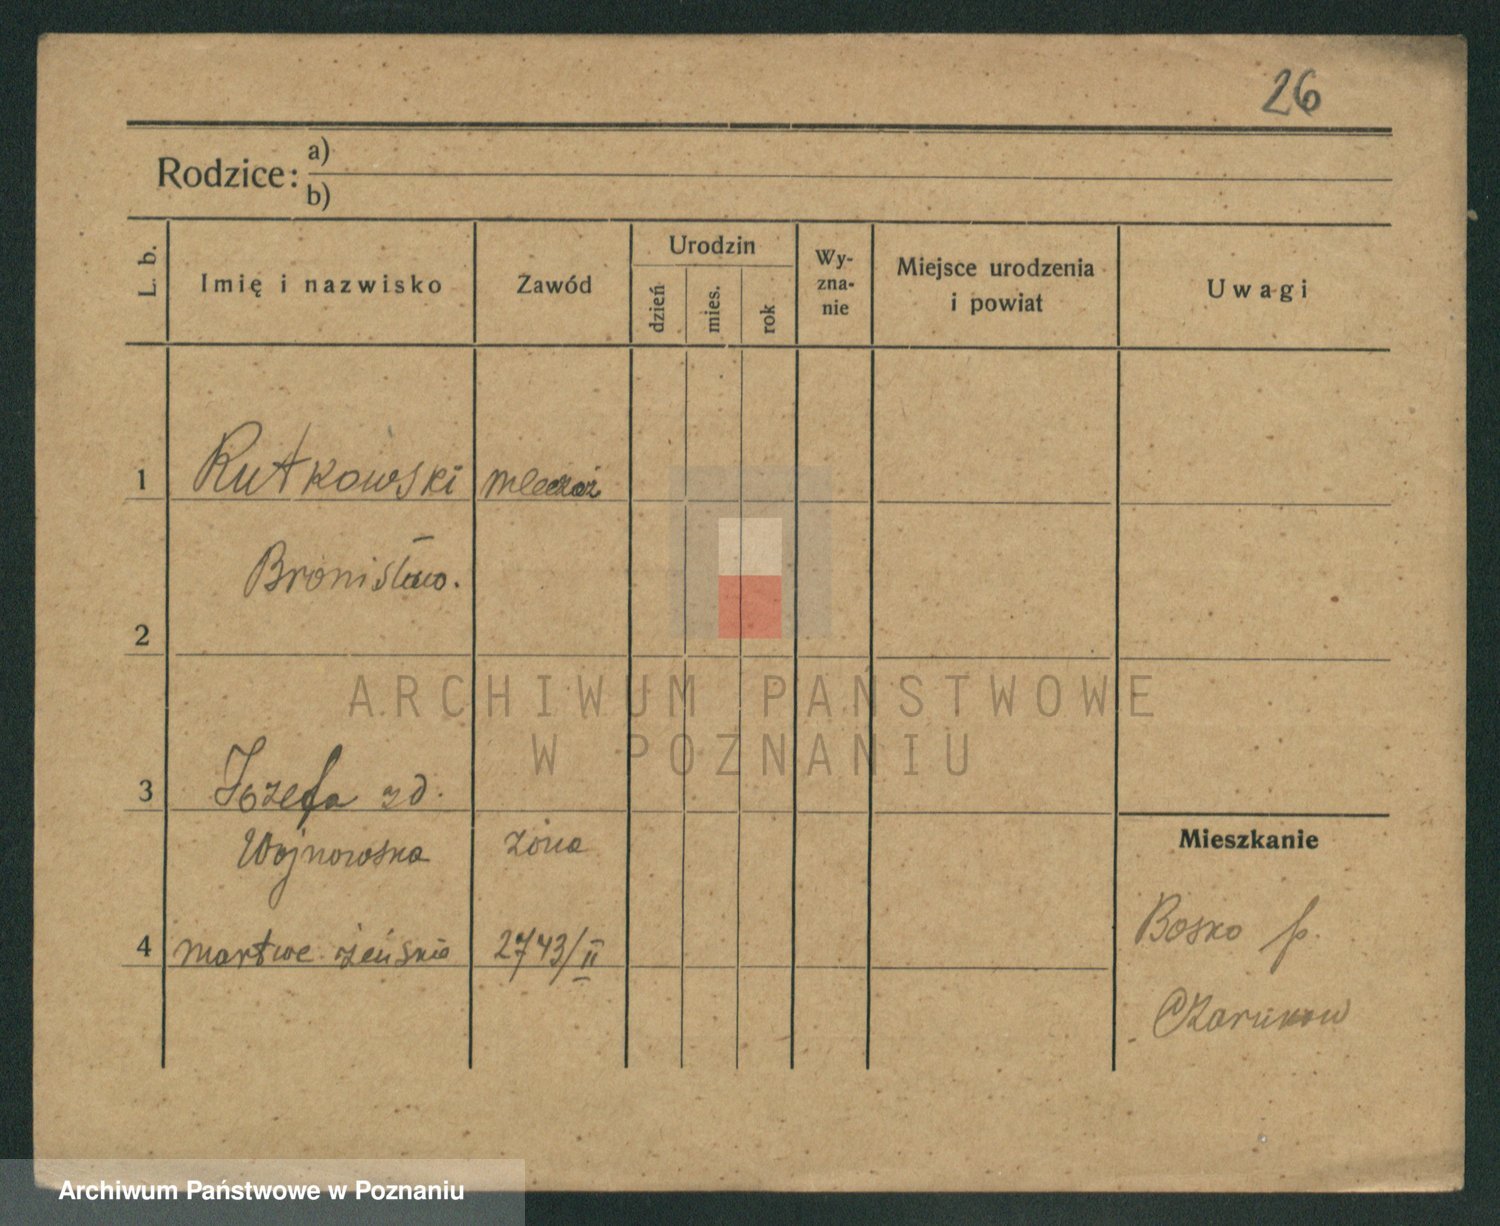 26
Rodzice: a)
b)
L. b.
Imię i nazwisko
Zawód
Urodzin
dzień
mies.
rok
Wy-
zna-
nie
Miejsce urodzenia
i powiat
Uwagi
1
Rutkowski
mleczaż
Bronisław.
2
ARCHIWUM PAŃSTWOWE
W POZNANIU
3
Józefa zd.
Wojnowska
żona
Mieszkanie
4
martwe żeńskie
2743/II
Bosko p.
Czarnków
Archiwum Państwowe w Poznaniu